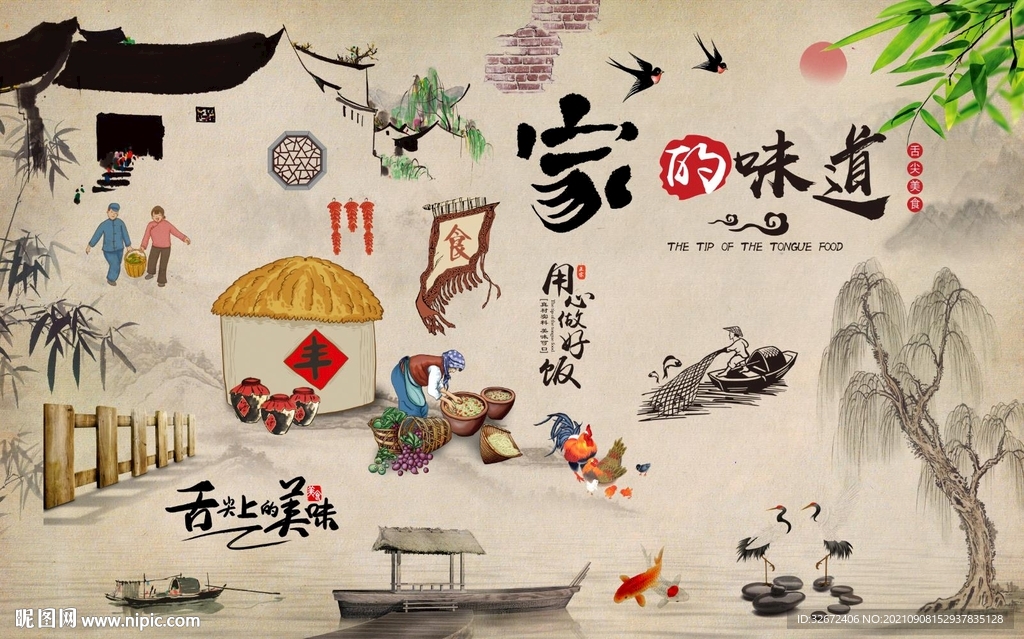 家的味道
舌尖美食
THE TIP OF THE TONGUE FOOD
食
用心做好饭
丰
舌尖上的美味
美食
昵图网 www.nipic.com
ID:32672406 NO:20210908152937835128